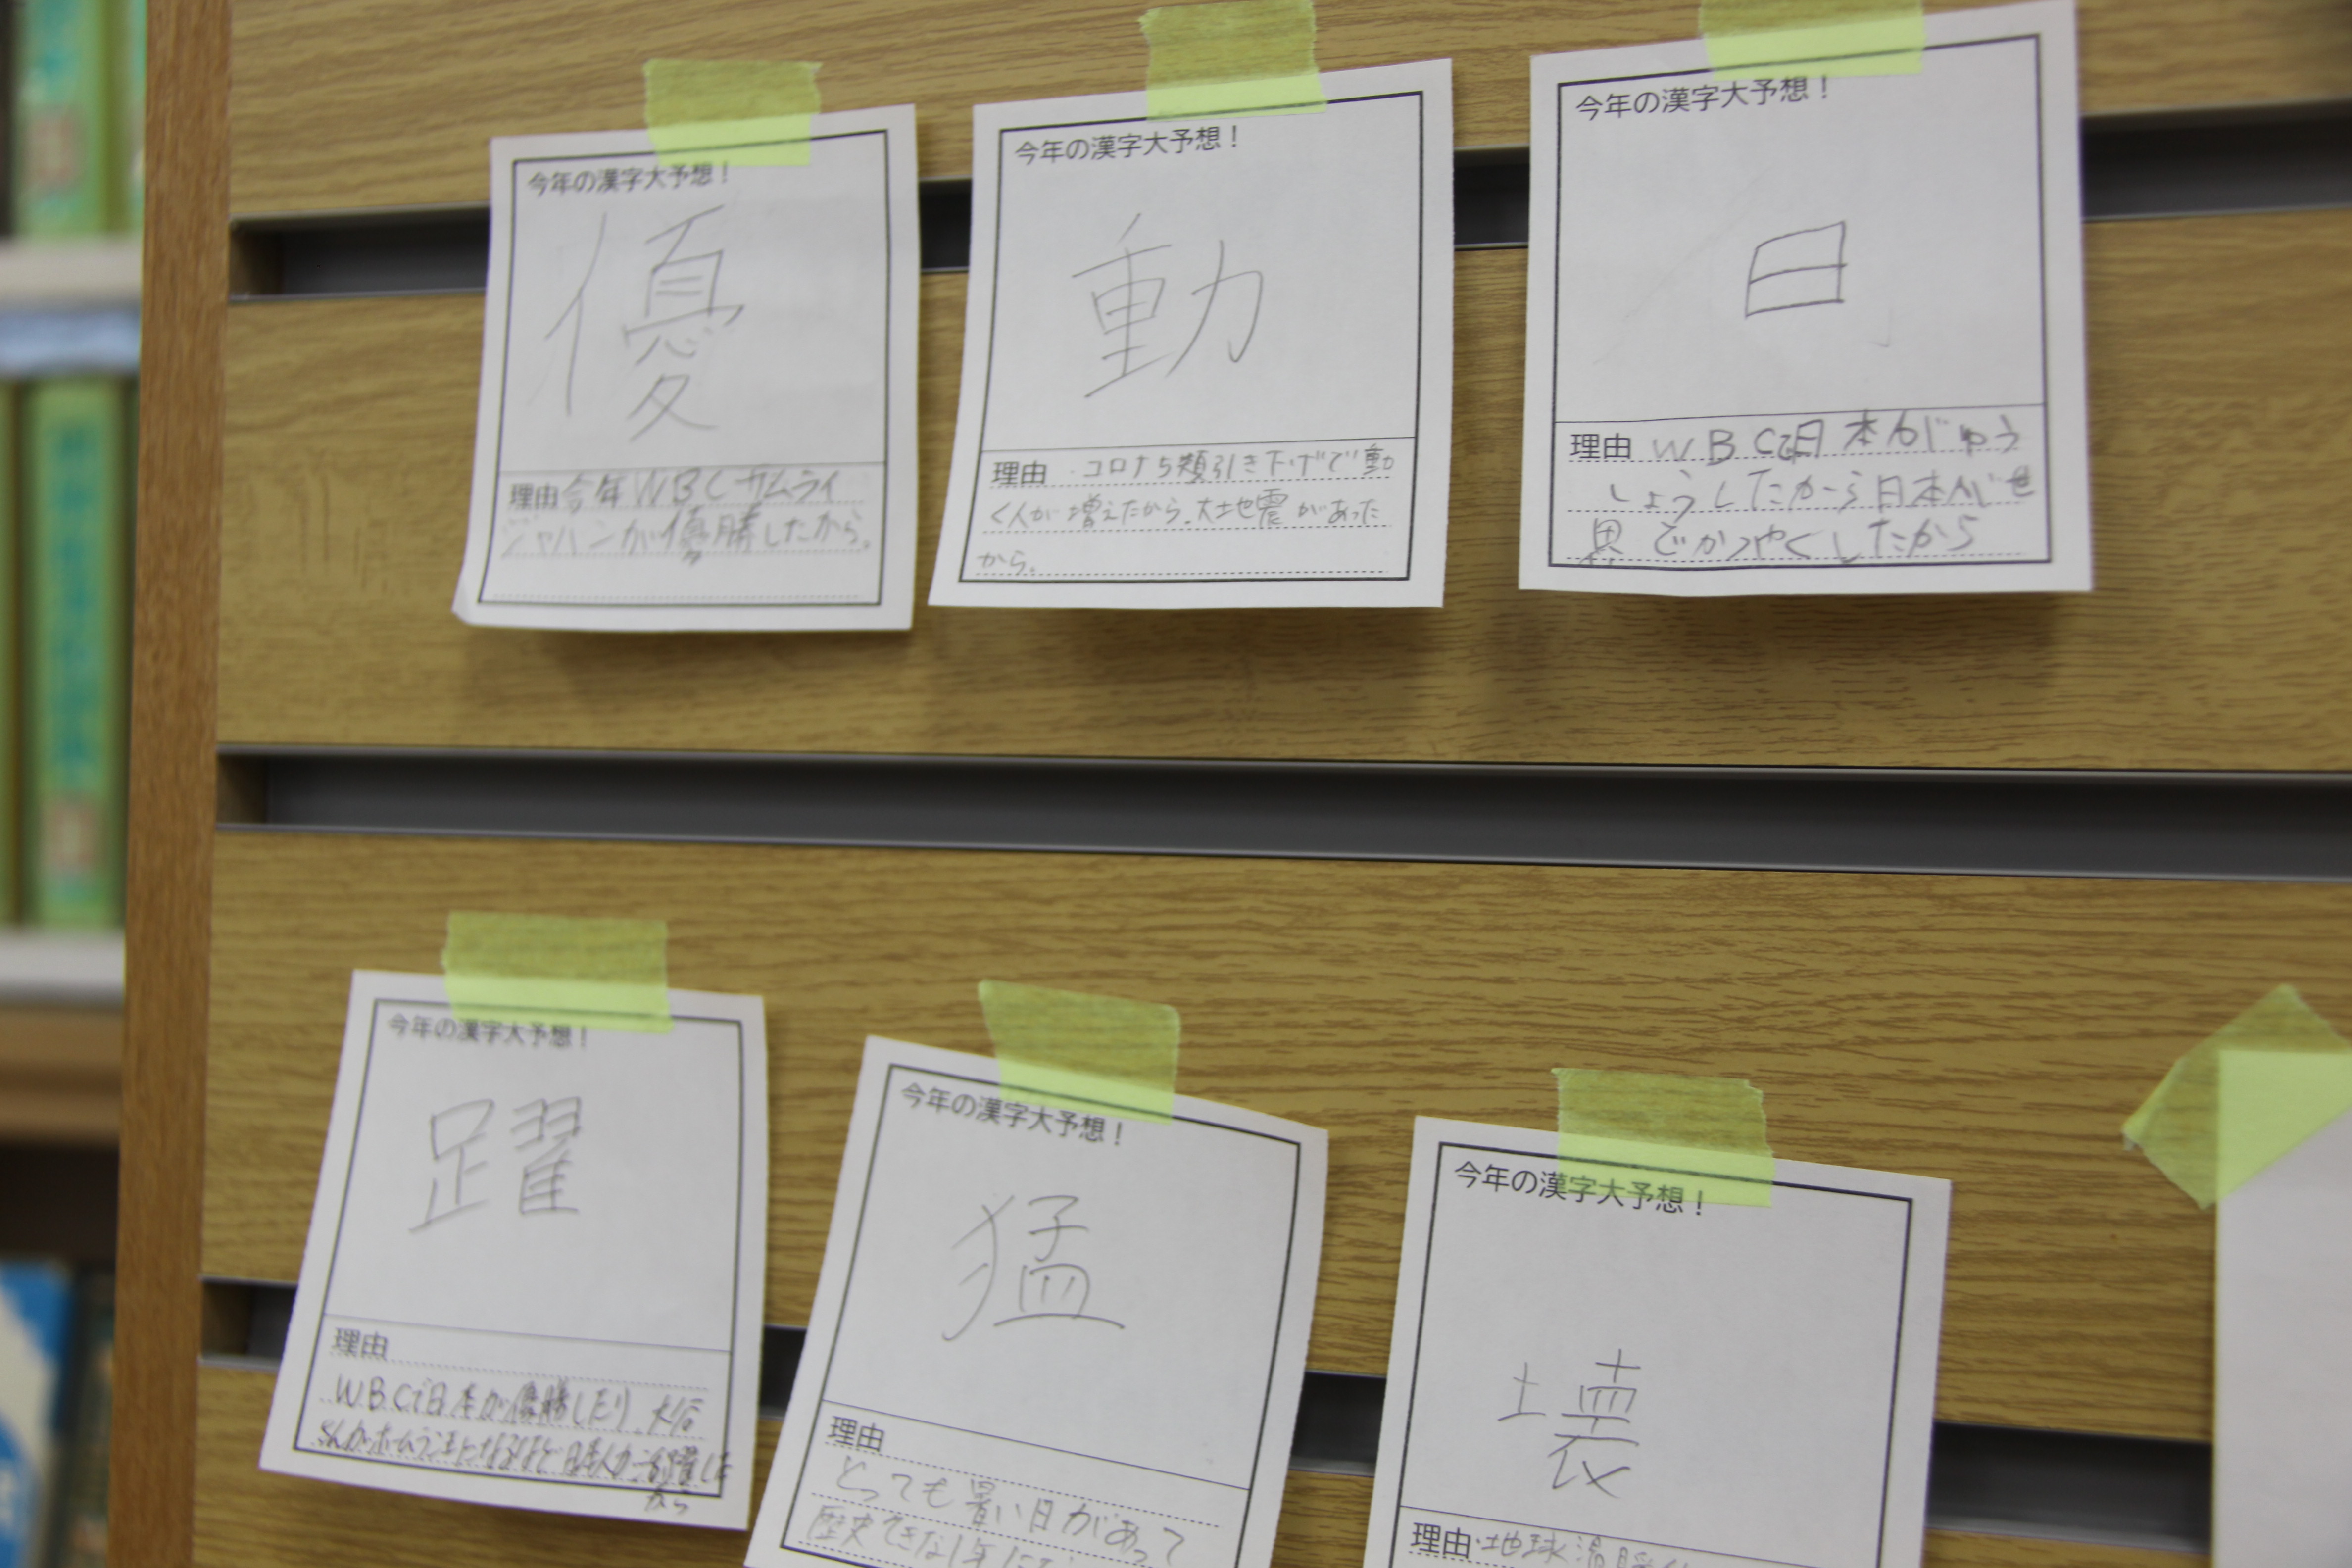 今年の漢字大予想！
優
理由 今年WBCサムライ
ジャパンが優勝したから。
今年の漢字大予想！
動
理由 ・コロナ5類引き下げで動
く人が増えたから。大地震があった
から。
今年の漢字大予想！
日
理由 WBCで日本がゆう
しょうしたから日本がせ
界でかつやくしたから
今年の漢字大予想！
躍
理由
WBCで日本が優勝したり、大谷
さんがホームラン王になるなど日本人が活躍した
から
今年の漢字大予想！
猛
理由
とっても暑い日があって
歴史てきな1年に
今年の漢字大予想！
壊
理由・地球温暖化